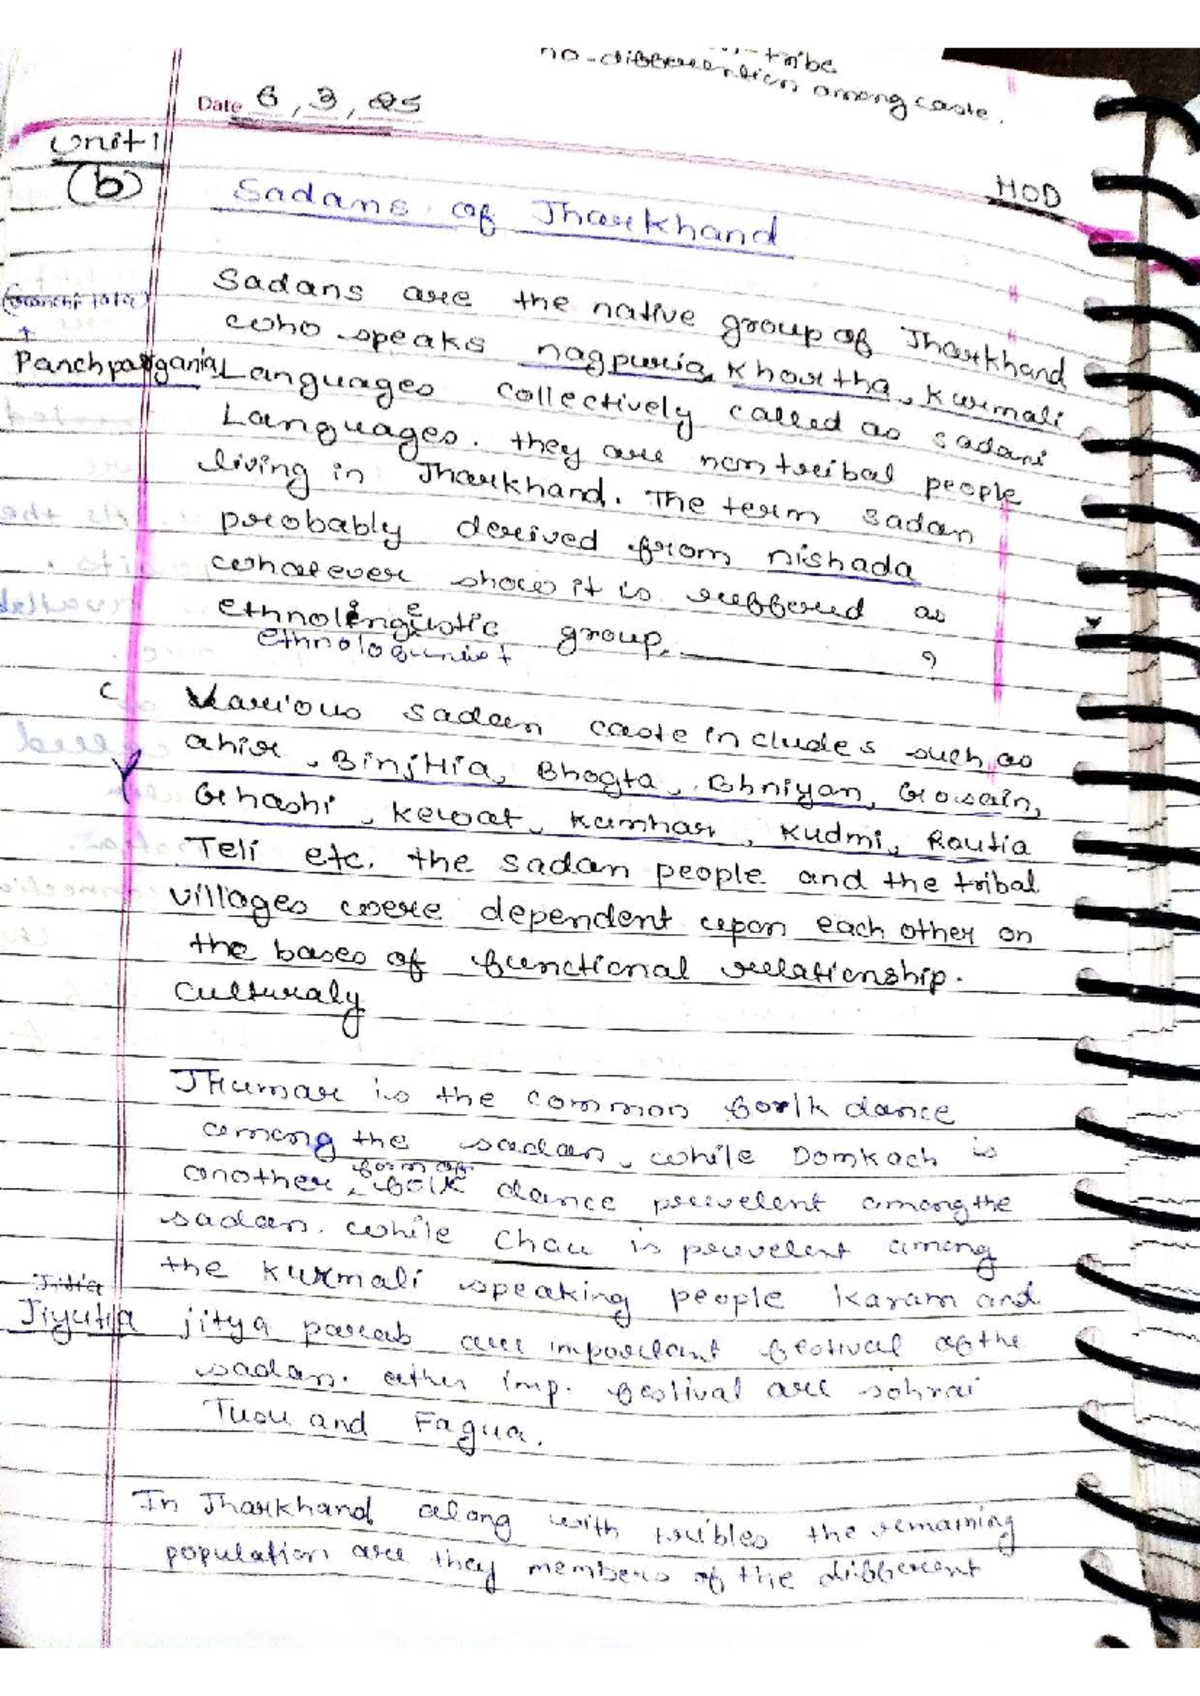 tribe
no-differention among caste.
Date 6, 3, 25
Unit 1
(b)
HOD
Sadans of Jharkhand
Sadans are the native group of Jharkhand
who speaks nagpuria, Khortha, Kurmali
Panchpargania Languages collectively called as sadani
Languages. they are nontribal people
living in Jharkhand. The term sadan
probably derived from nishada
whatever show it is reffered as
ethnolinguistic group.
ethnologunist
Various sadan caste includes such as
ahir, Binjhia, Bhogta, Bhniyan, Gosain,
Ghashi, Kewat, Kumhar, Kudmi, Rautia
Teli etc. the sadan people and the tribal
villages were dependent upon each other on
the bases of functional relationship.
Culturaly
JHumar is the common forlk dance
among the sadan, while Domkach is
another, form of folk dance prevelent among the
sadan. while Chau is prevelent among
the Kurmali speaking people Karam and
Jitia
Jiyutia jitya parab are important festival of the
sadan. other imp. festival are sohrai
Tusu and Fagua.
In Jharkhand along with tribles the remaining
population are they members of the different